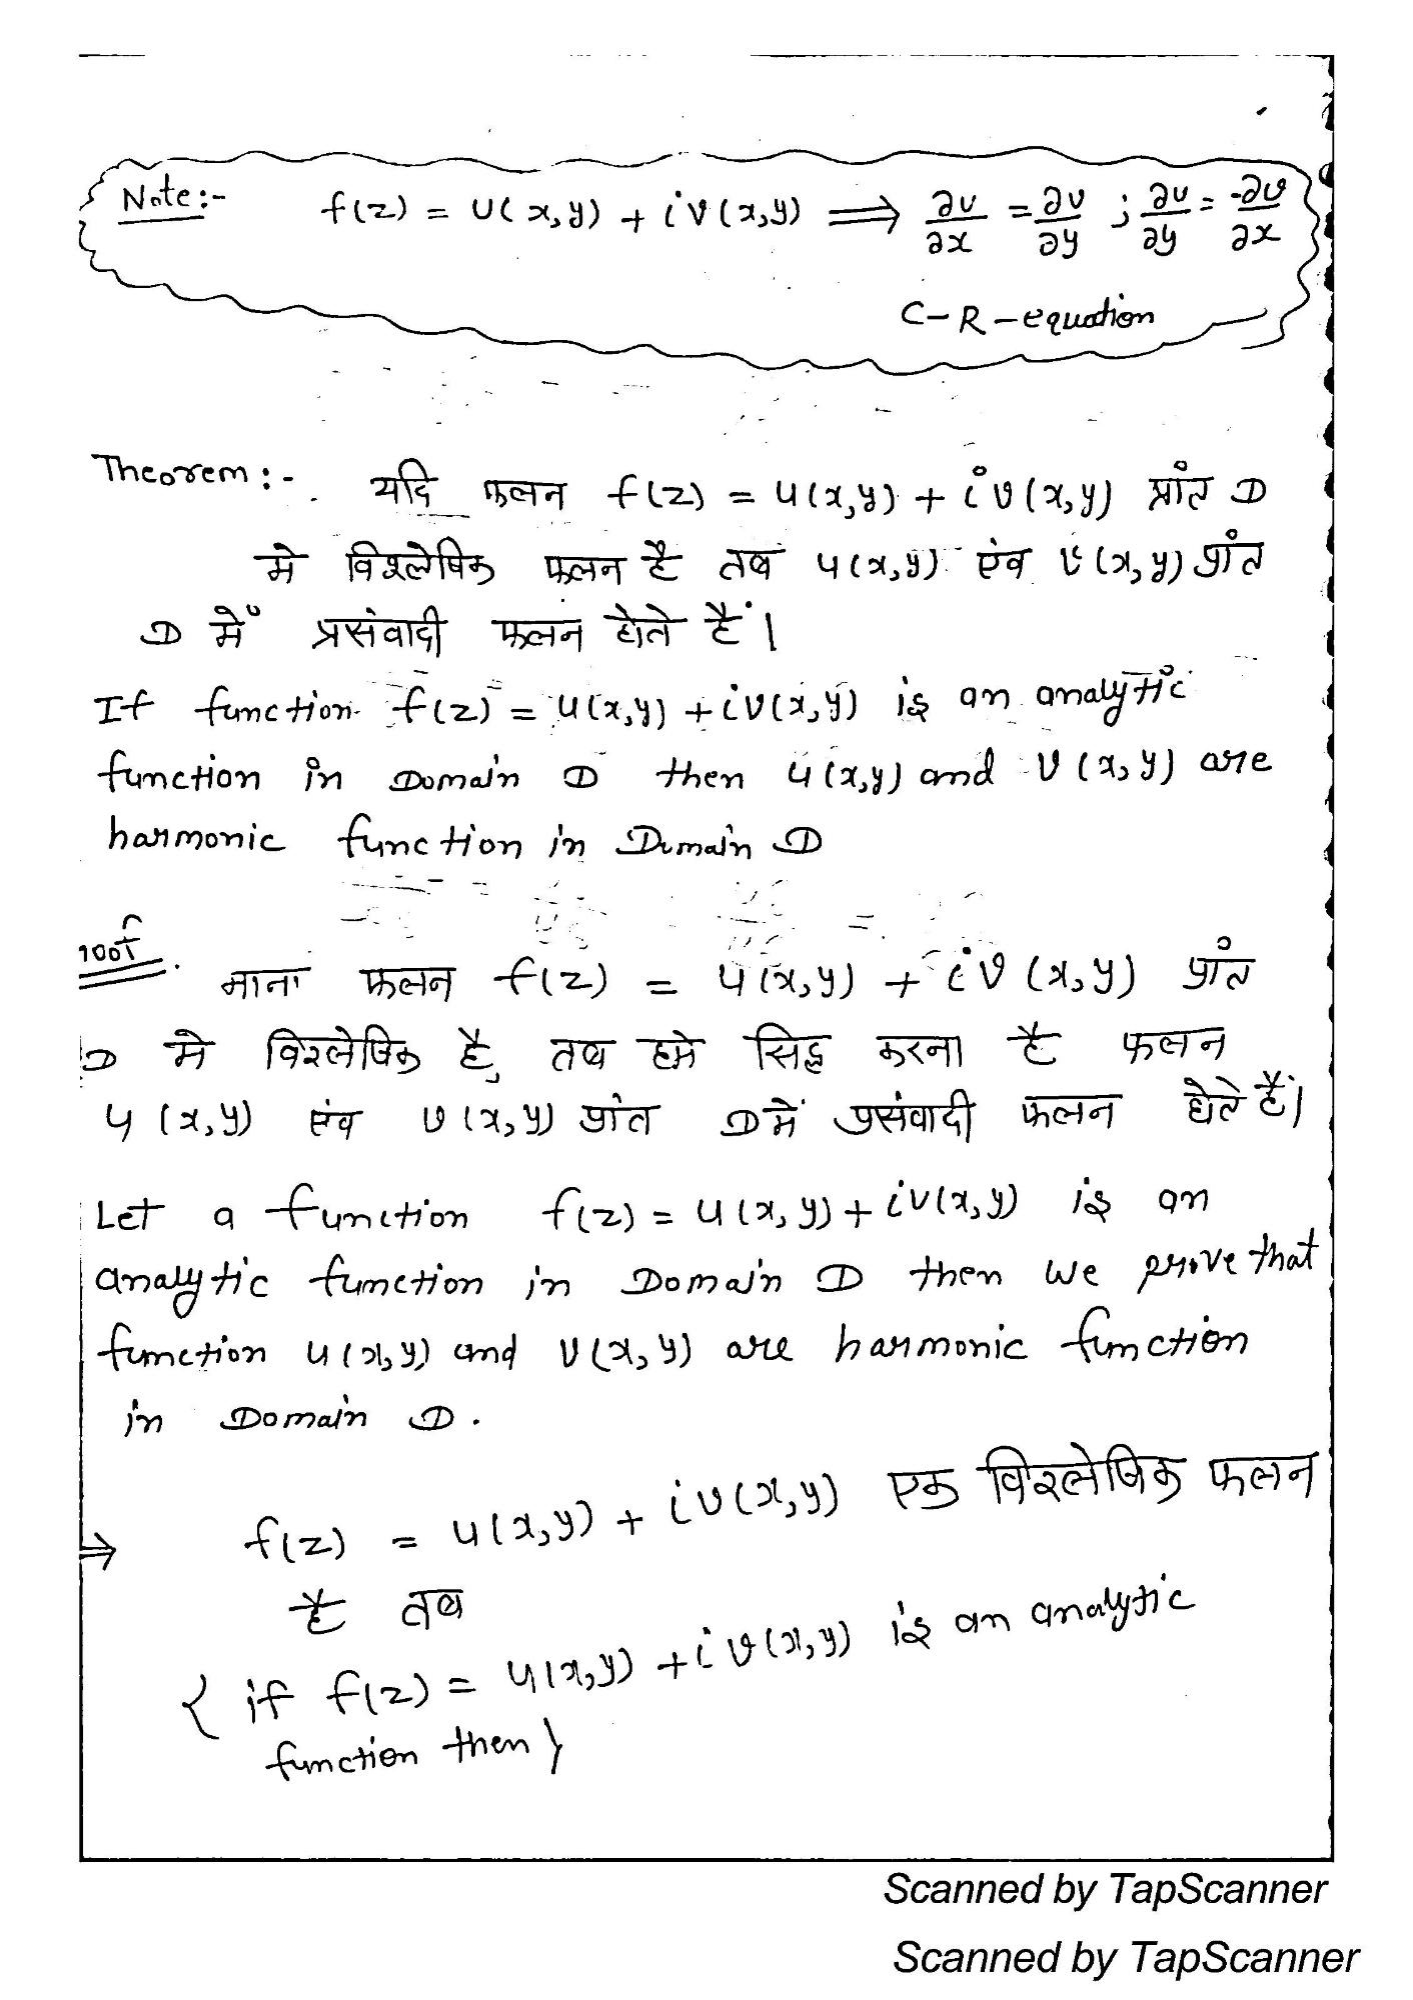 Note:- f(z) = u(x,y) + iv(x,y) ⟹ ∂u/∂x = ∂v/∂y ; ∂u/∂y = -∂v/∂x
C-R-equation
Theorem:- यदि फलन f(z) = u(x,y) + iv(x,y) प्रांत D
मे विश्लेषिक फलन है तब u(x,y) एंव v(x,y) प्रांत
D में प्रसंवादी फलन होते हैं।
If function f(z) = u(x,y) + iv(x,y) is an analytic
function in Domain D then u(x,y) and v(x,y) are
harmonic function in Domain D
roof. माना फलन f(z) = u(x,y) + iv(x,y) प्रांत
D मे विश्लेषिक है, तब हमे सिद्ध करना है फलन
u(x,y) एंव v(x,y) प्रांत D में प्रसंवादी फलन होते हैं।
Let a function f(z) = u(x,y) + iv(x,y) is an
analytic function in Domain D then we prove that
function u(x,y) and v(x,y) are harmonic function
in Domain D.
⇒ f(z) = u(x,y) + iv(x,y) एक विश्लेषिक फलन
है तब
{ if f(z) = u(x,y) + iv(x,y) is an analytic
function then }
Scanned by TapScanner
Scanned by TapScanner